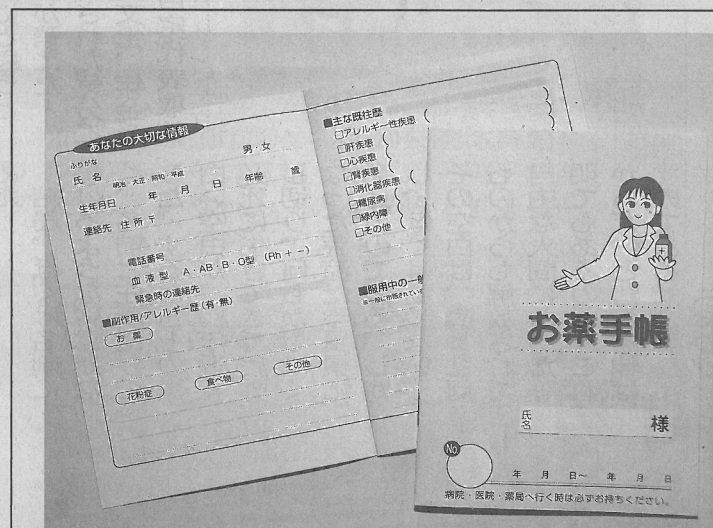 あなたの大切な情報
ふりがな
氏名 男・女
明治・大正・昭和・平成
生年月日 年 月 日 年齢 歳
連絡先 住所 〒
電話番号
血液型 A・AB・B・O型 (Rh + −)
緊急時の連絡先
■副作用/アレルギー歴(有・無)
お薬
花粉症 食べ物 その他
■主な既往歴
□アレルギー性疾患 (
□肝疾患 (
□心疾患 (
□腎疾患 (
□消化器疾患 (
□糖尿病 (
□緑内障 (
□その他 (
■服用中の一般
※一般に市販されてい
お薬手帳
氏名 様
No.
年 月 日〜 年 月 日
病院・医院・薬局へ行く時は必ずお持ちください。